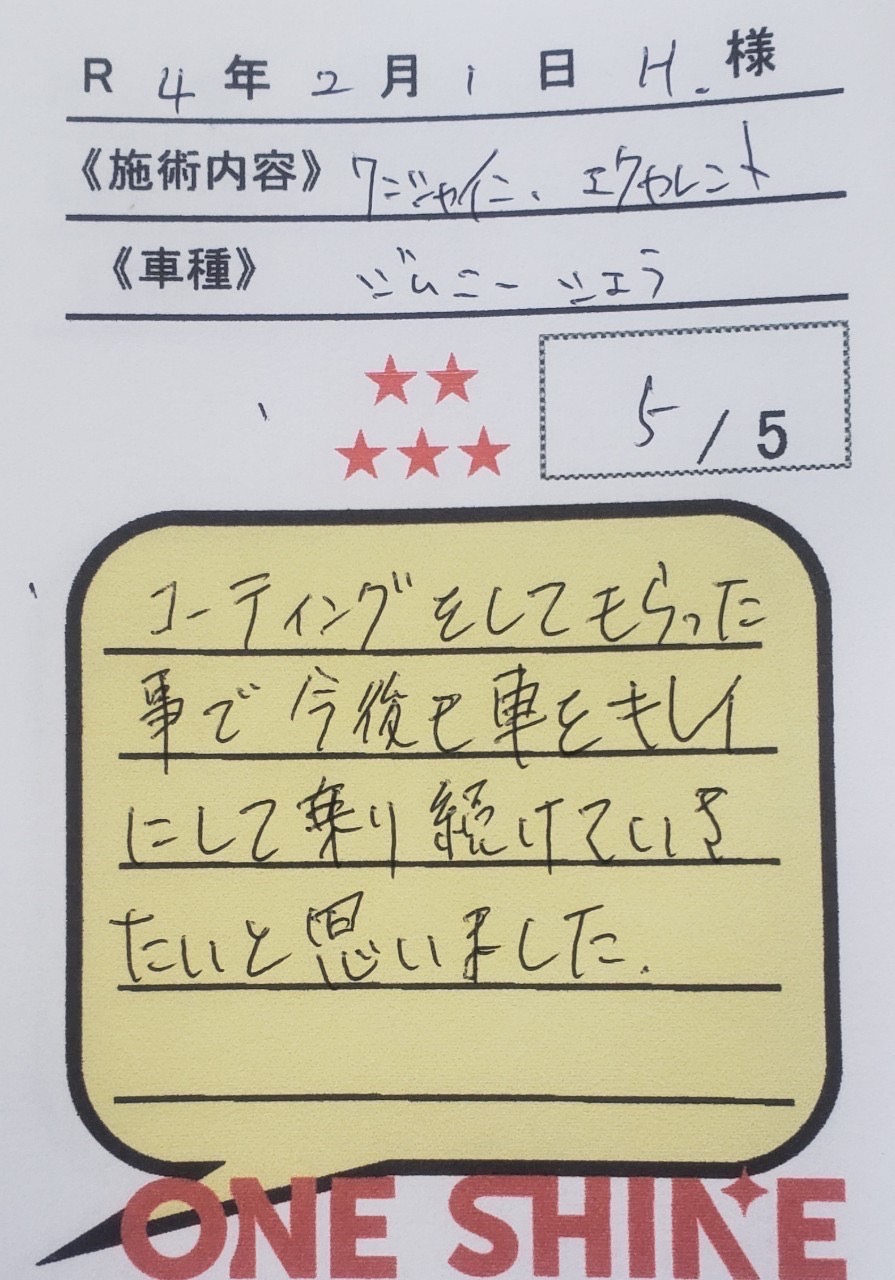 R 4年2月1日 H.様
《施術内容》 クジャイン、エクセレント
《車種》 ジムニーシエラ
★★
★★★
5/5
コーティングをしてもらった
事で今後も車をキレイ
にして乗り続けていき
たいと思いました.
ONE SHINE